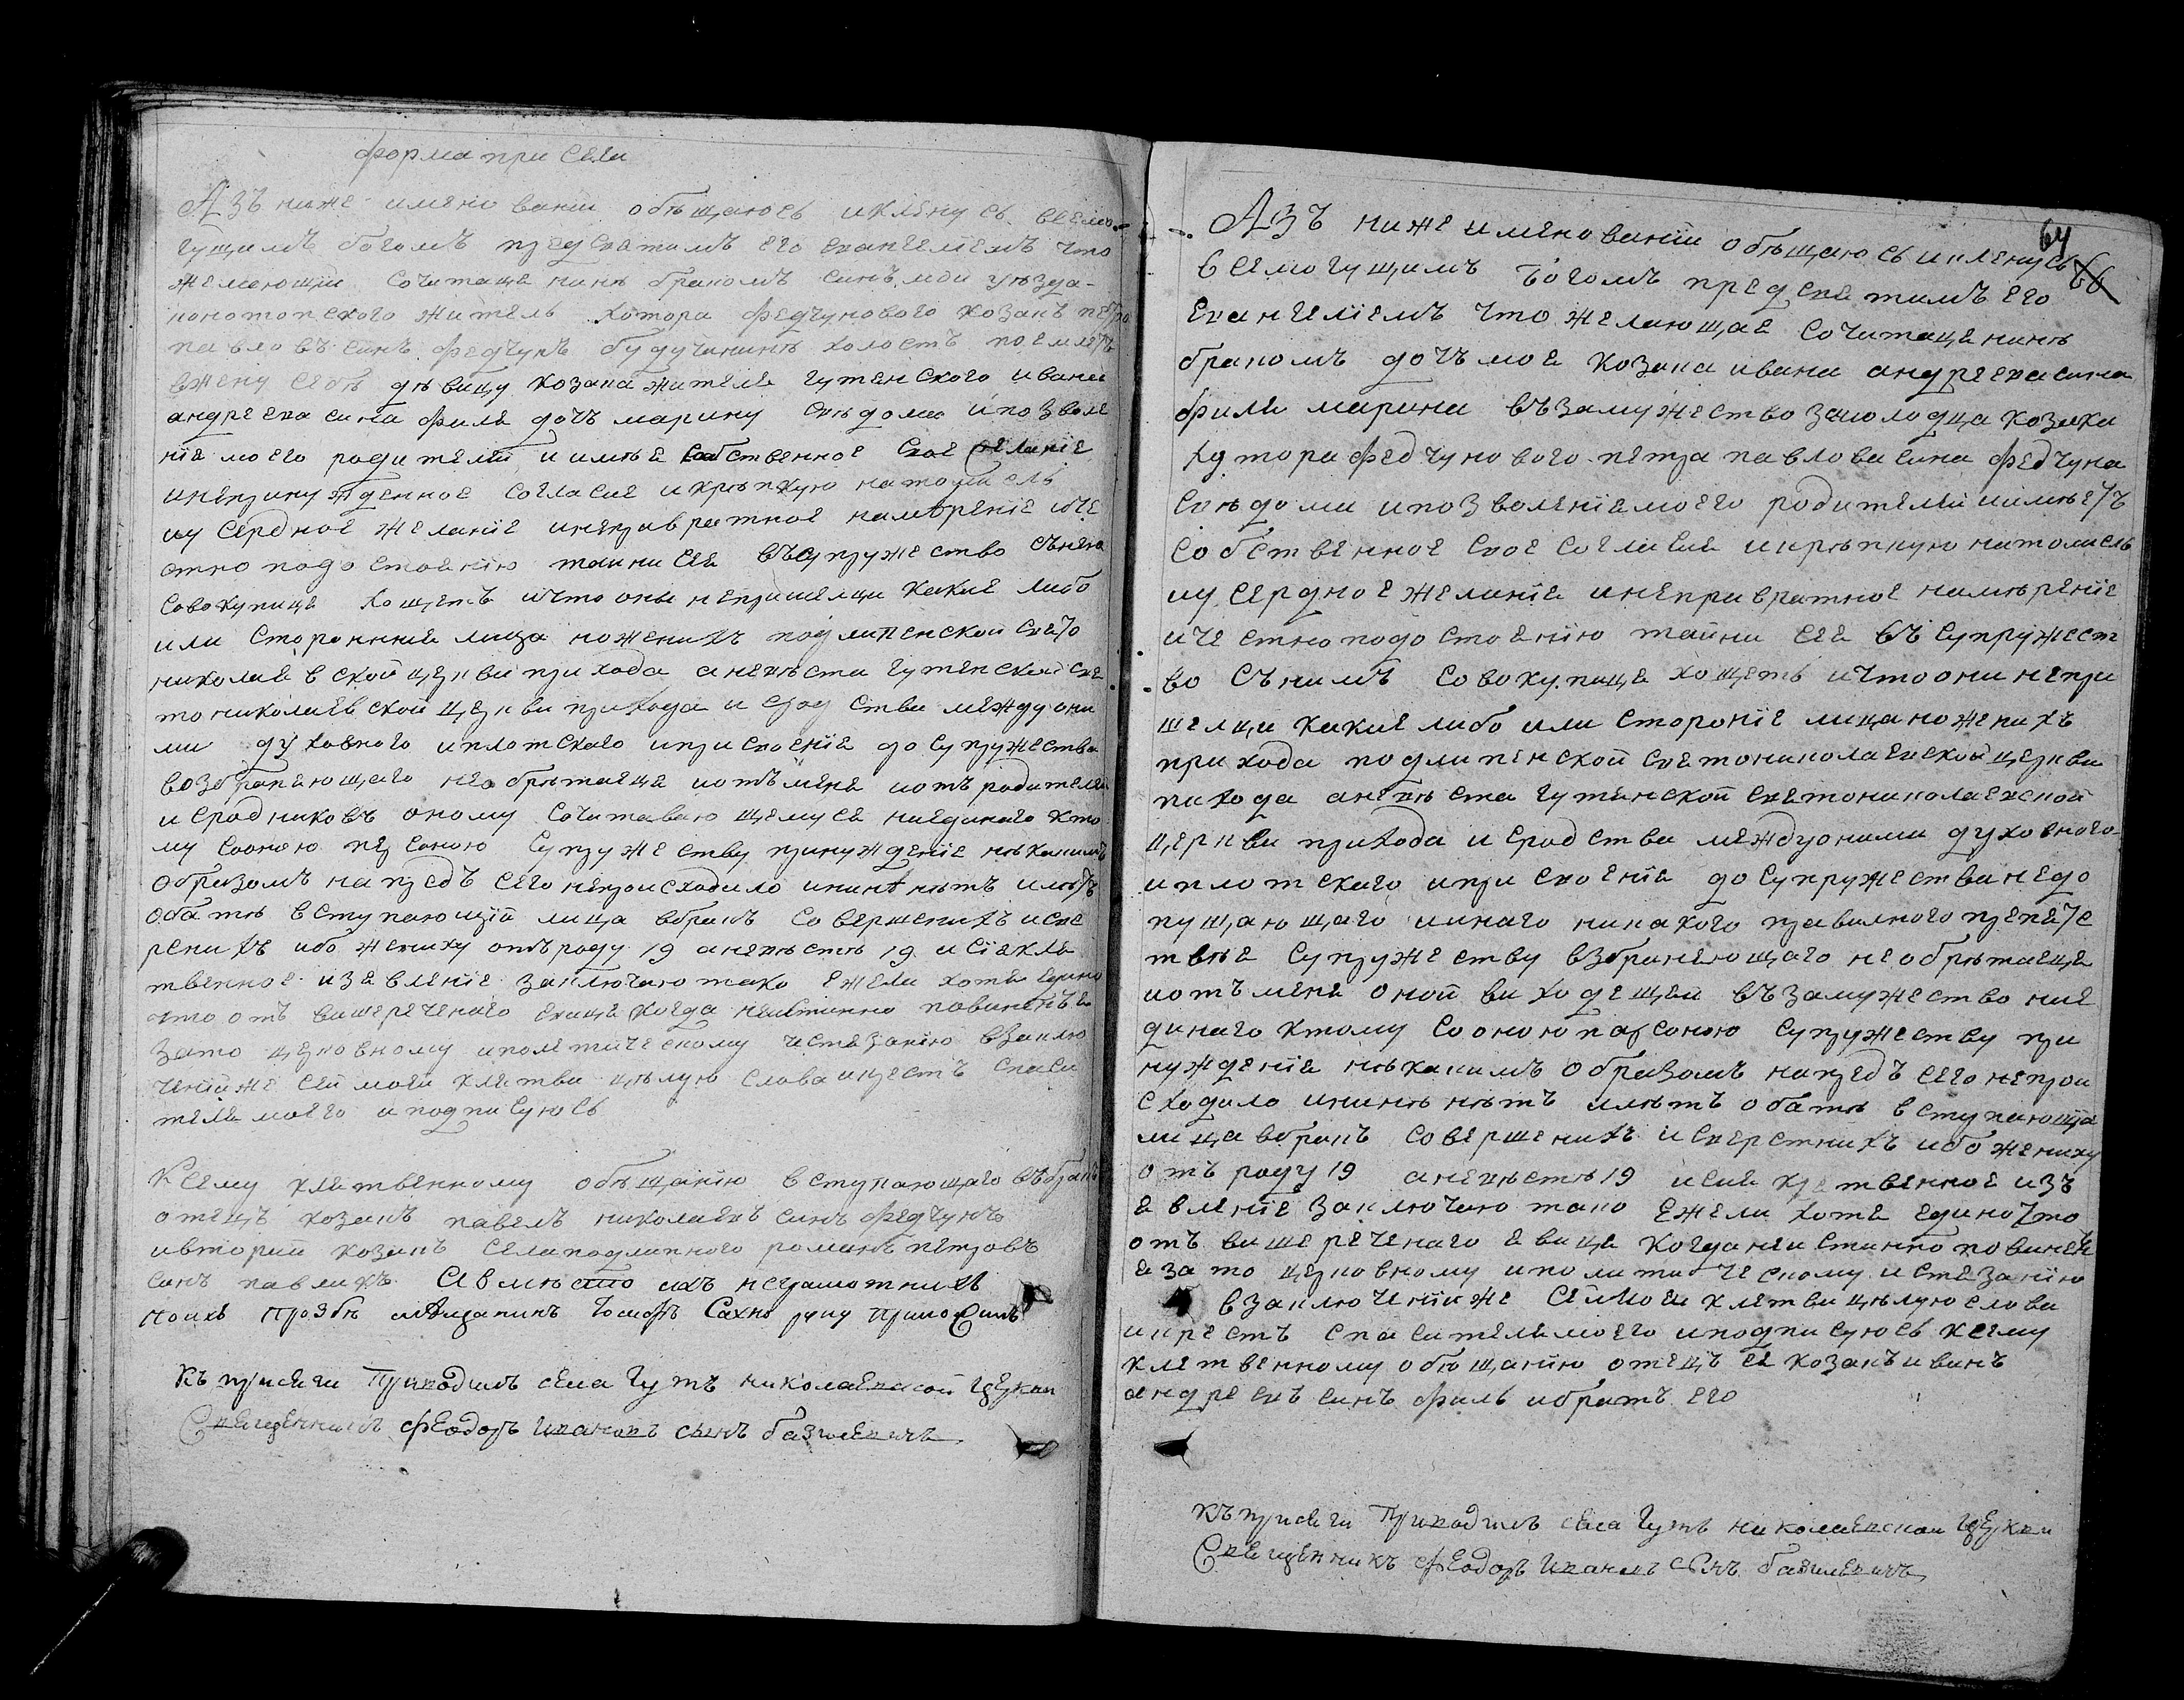 форма при сеги
Азъ ниже имено ваній обѣщаюсь иклянусь всемо-
гущимъ богомъ предсвятымъ его евангелиемъ что
желающій сочитаця нинѣ бракомъ синъ мой уѣзда-
конотопского житель хотора федчунового козакъ петро
павловъ синъ федчунъ будучи нинѣ холостъ поемлетъ
вжену себѣ дѣвицу козака жителя гутенского ивана
андреева сина филя дочъ марину свѣдома ипозволе
нія моего родителей и имѣя собственное свое желаніе
инепринужденное согласие икрѣпкую натой мисль
иу сердное желаніе инепривратное намѣреніе иче
стно подостоянію тайни сея въсупружество сънею
совокупиця хощетъ ичто они непришелци какие либо
или сторонние лица ножених подлипенской свято
николаевской церкви прихода аневѣста гутенской свя
тониколаевской церкви прихода и сродства между они
ми духовного иплотского иприсвоенія до супружества
возбраняющаго необрѣтаеця иотъ мене иотъ родителей
и сродниковъ оному сочитаваю щемуся ниединаго кто
му соною персоною супружеству принужденіе нѣкакимъ
образомъ напредъ сего непроисходило ининѣ нѣтъ имѣютъ
обапѣ вступающій лица вбракъ совершенихъ исве
рених ибо жениху отъ роду 19 аневѣстѣ 19 и сія кля
твенное изявленіе заключаю тако ежели хотя едино
что отъ вишереченаго явиця когда неистинно повиненъ я
зато церковному иполитическому истязанію взаклю
ченіи же сей моей клятви цѣлую слова икрестъ спаси
теля моего иподписуюсь
Ксему клятвенному обѣщанію вступающаго въбракъ
отецъ козакъ павелъ николаевъ синъ федчунъ
ивторий козакъ села подлипного романъ петровъ
синъ павликъ а вмѣсто ихъ неграмотнихъ
поихъ прозбѣ Іосифъ Сахно руку приложилъ
Къ присеги приводилъ села гутъ николаевской церкви
Священникъ Феодоръ Ивановъ синъ базилевичъ
64
66
Азъ ниже именованій обѣщаюсь иклянусь
всемогущимъ богомъ предсвятимъ его
евангелиемъ что желающая сочитаця нинѣ
бракомъ дочъ моя козака ивана андреева сина
филя марина възамужество замолодца козака
хутора федчунового петра павлова сина федчуна
свѣдома ипозволенія моего родителей иимѣетъ
собственное свое согласие икрѣпкую натомисль
иу сердное желанія инепривратное намѣреніе
ичестно подостоянію тайни сея въ супружест
во сънимъ совокупиця хощетъ ичто они непри
шелци какие либо или стороніе лица ноженихъ
прихода подлипенской святониколаевской церкви
пихода аневѣста гутенской святониколаевской
церкви прихода и сродства междуоними духовного
иплотского иприсвоенія до супружества недо
пущающаго иинаго никакого правилного препятс
твия супружеству взбраняющаго необрѣтаеця
иотъ мене оной виходещей възамужество ние
динаго ктому соною парсоною супружеству при
нужденія нѣкакимъ образомъ напредъ сего непрои
сходило ининѣ нѣтъ имѣтъ обапѣ вступающа
лица вбракъ совершенихъ исверстнихъ ибо жениху
отъ роду 19 аневѣстѣ 19 исия клятвенное изъ
явленіе заключаю тако ежели хотя едино что
отъ вишереченаго явиця когда неистинно повинен
я зато церковному иполитическому истязанію
взаключеніи же сей моей клятви цѣлую слова
икрестъ спасителя моего иподписуюсь ксему
клятвенному обѣщанію отецъ ея козакъ иванъ
андреевъ синъ филь ибратъ его
Къ присеги приводилъ села гутъ николаевской церкви
Священникъ Феодоръ Ивановъ синъ базилевичъ